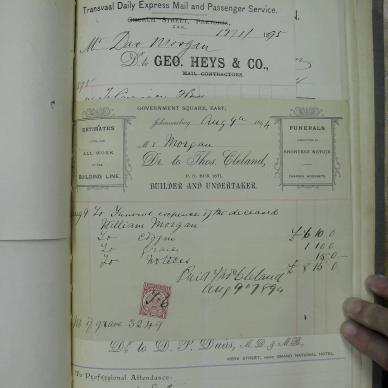 Transvaal Daily Express Mail and Passenger Service.
CHURCH STREET, PRETORIA,
1895
Mr Dav Morgan
Dr to GEO. HEYS & CO.,
MAIL CONTRACTORS.
GOVERNMENT SQUARE, EAST,
Johannesburg, Aug 9th 1894
ESTIMATES
ALL WORK
BUILDING LINE.
Mr Morgan
Dr. to Thos. Cleland,
P. O. BOX 1671,
BUILDER AND UNDERTAKER.
FUNERALS
SHORTEST NOTICE
CHARGES MODERATE.
Aug 9 To Funeral expences of the deceased
William Morgan
To Coffin £6 10.0
To 1 10.0
To Notices 15.0
£8 15.0
Paid Thos Cleland
Aug 9th 1894
No of grave 3249
Dr. to D. P. Davis, M.D. & M.B.,
KERK STREET, NEAR GRAND NATIONAL HOTEL.
To Professional Attendance: